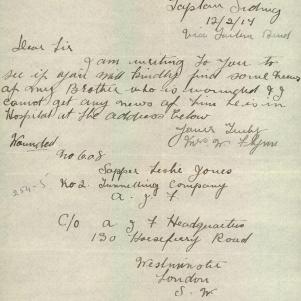 Sidney
12/2/17
via Tailem Bend
Dear Sir
I am writing to you to
see if you will kindly find some news
of my Brother who is wounded & I
cannot get any news of him he is in
Hospital at the address below
Yours Truly
Mrs W Flynn
Wounded
No 608
Sapper Leslie Jones
254-5
No 2. Tunnelling Company
A. I. F.
C/o A I F Headquarters
130 Horseferry Road
Westminster
London
S. W